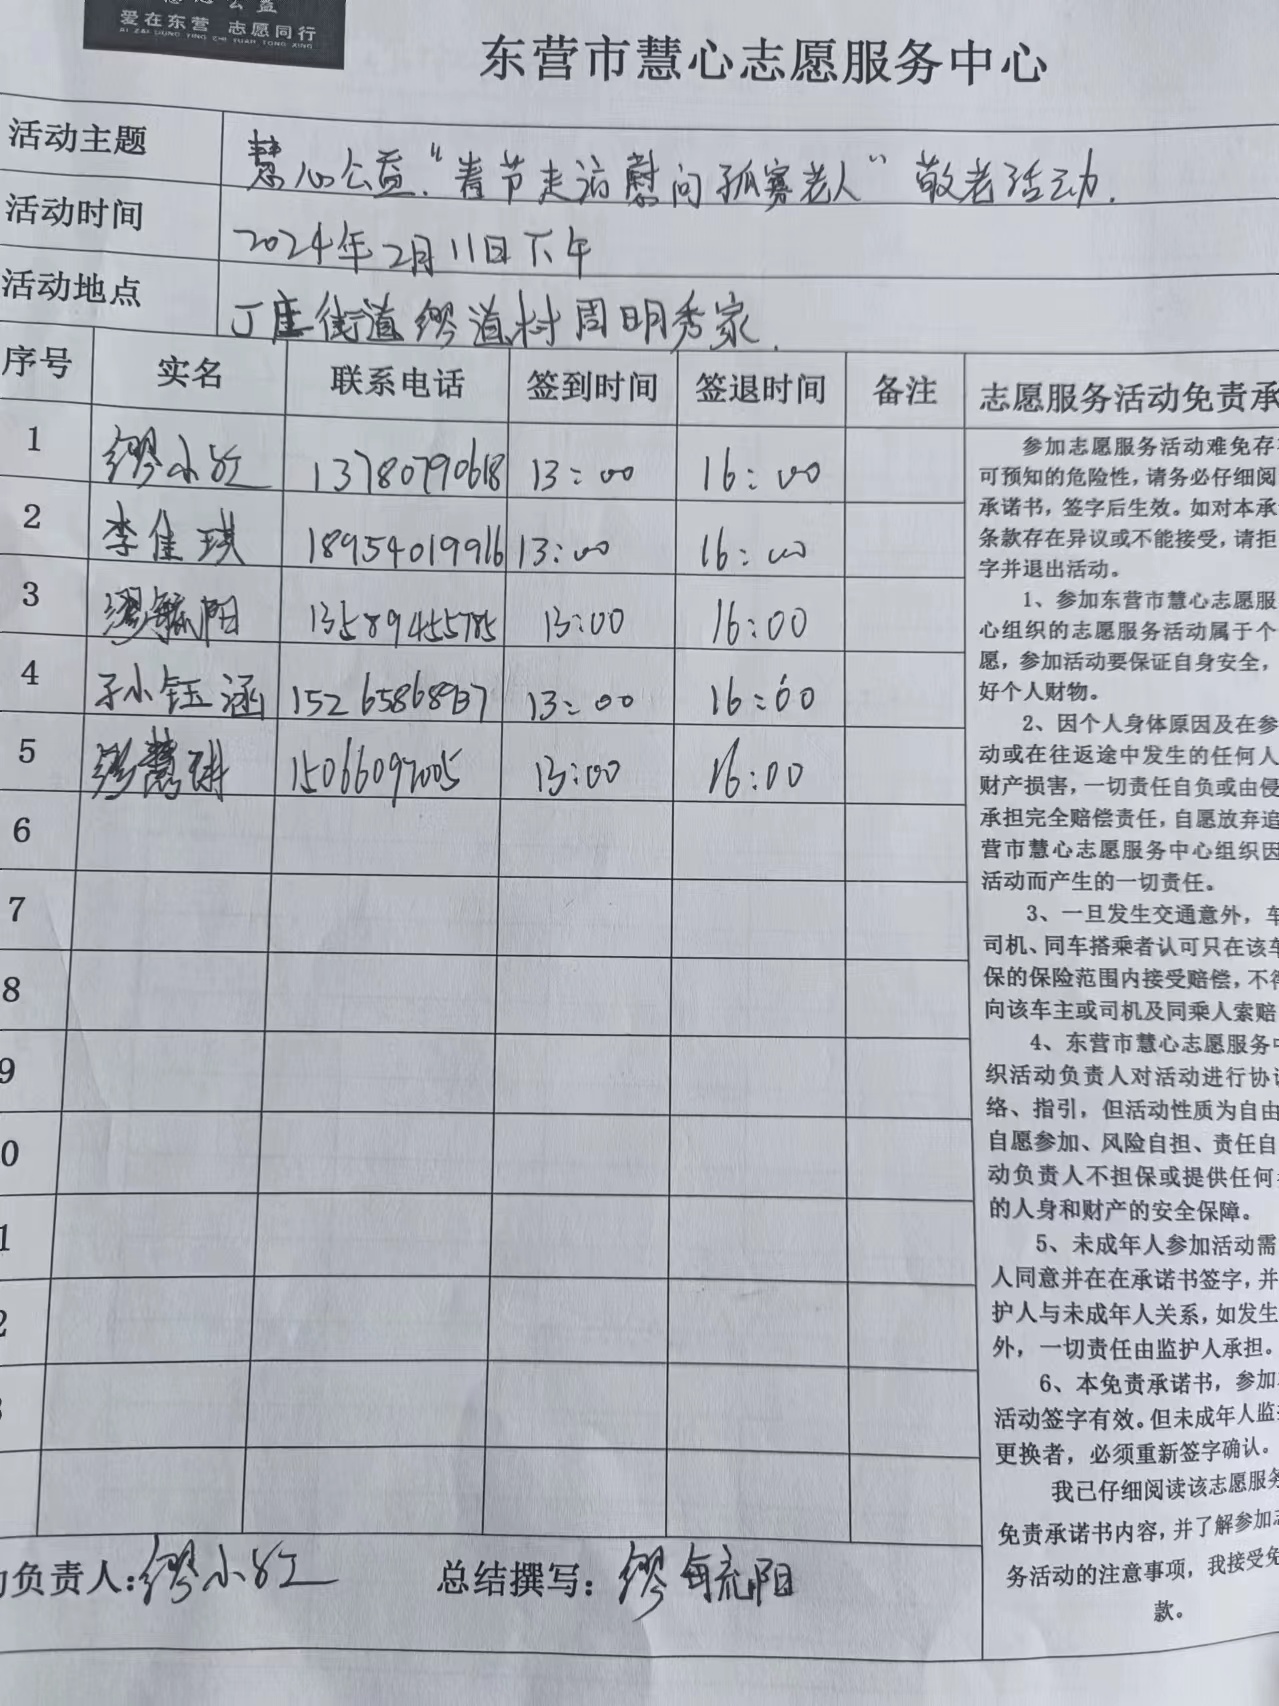 爱在东营 志愿同行
东营市慧心志愿服务中心
活动主题 慧心公益."春节走访慰问孤寡老人"敬老活动.
活动时间 2024年2月11日下午
活动地点 丁庄街道缪道村周明秀家.
序号 实名 联系电话 签到时间 签退时间 备注 志愿服务活动免责承
1 缪小红 13780790618 13:00 16:00
2 李佳琪 18954019916 13:00 16:00
3 缪毓阳 13589455785 13:00 16:00
4 子小钰涵 13:00 16:00
5 缪慧琳 15066092005 13:00 16:00
6
7
8
9
0
1
2
参加志愿服务活动难免存
可预知的危险性，请务必仔细阅
承诺书，签字后生效。如对本承
条款存在异议或不能接受，请拒
字并退出活动。
1、参加东营市慧心志愿服
心组织的志愿服务活动属于个
愿，参加活动要保证自身安全，
好个人财物。
2、因个人身体原因及在参
动或在往返途中发生的任何人
财产损害，一切责任自负或由侵
承担完全赔偿责任，自愿放弃追
营市慧心志愿服务中心组织因
活动而产生的一切责任。
3、一旦发生交通意外，车
司机、同车搭乘者认可只在该车
保的保险范围内接受赔偿，不得
向该车主或司机及同乘人索赔
4、东营市慧心志愿服务中
织活动负责人对活动进行协
络、指引，但活动性质为自由
自愿参加、风险自担、责任自
动负责人不担保或提供任何
的人身和财产的安全保障。
5、未成年人参加活动需
人同意并在在承诺书签字，并
护人与未成年人关系，如发生
外，一切责任由监护人承担。
6、本免责承诺书，参加
活动签字有效。但未成年人监
更换者，必须重新签字确认。
我已仔细阅读该志愿服务
免责承诺书内容，并了解参加志
务活动的注意事项，我接受免
款。
负责人:缪小红 总结撰写：缪毓阳